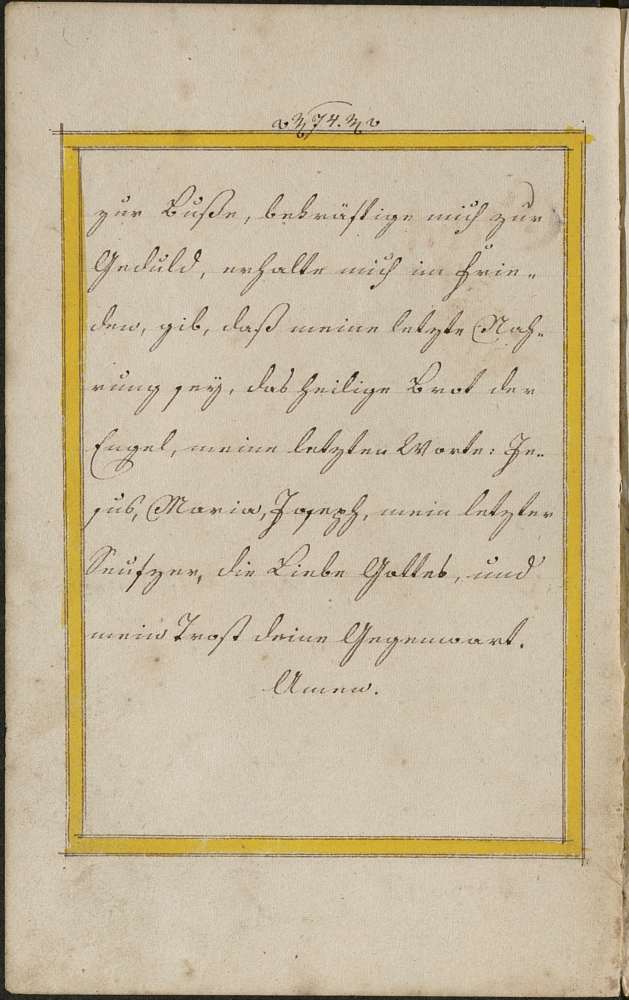 74.
zur Buße, bekräftige mich zur
Geduld, erhalte mich im Frie-
den, gib, daß meine letzte Nah-
rung sey, das heilige Brot der
Engel, meine letzten Worte: Je-
sus, Maria, Joseph, mein letzter
Seufzer, die Liebe Gottes, und
mein Trost deine Gegenwart.
Amen.